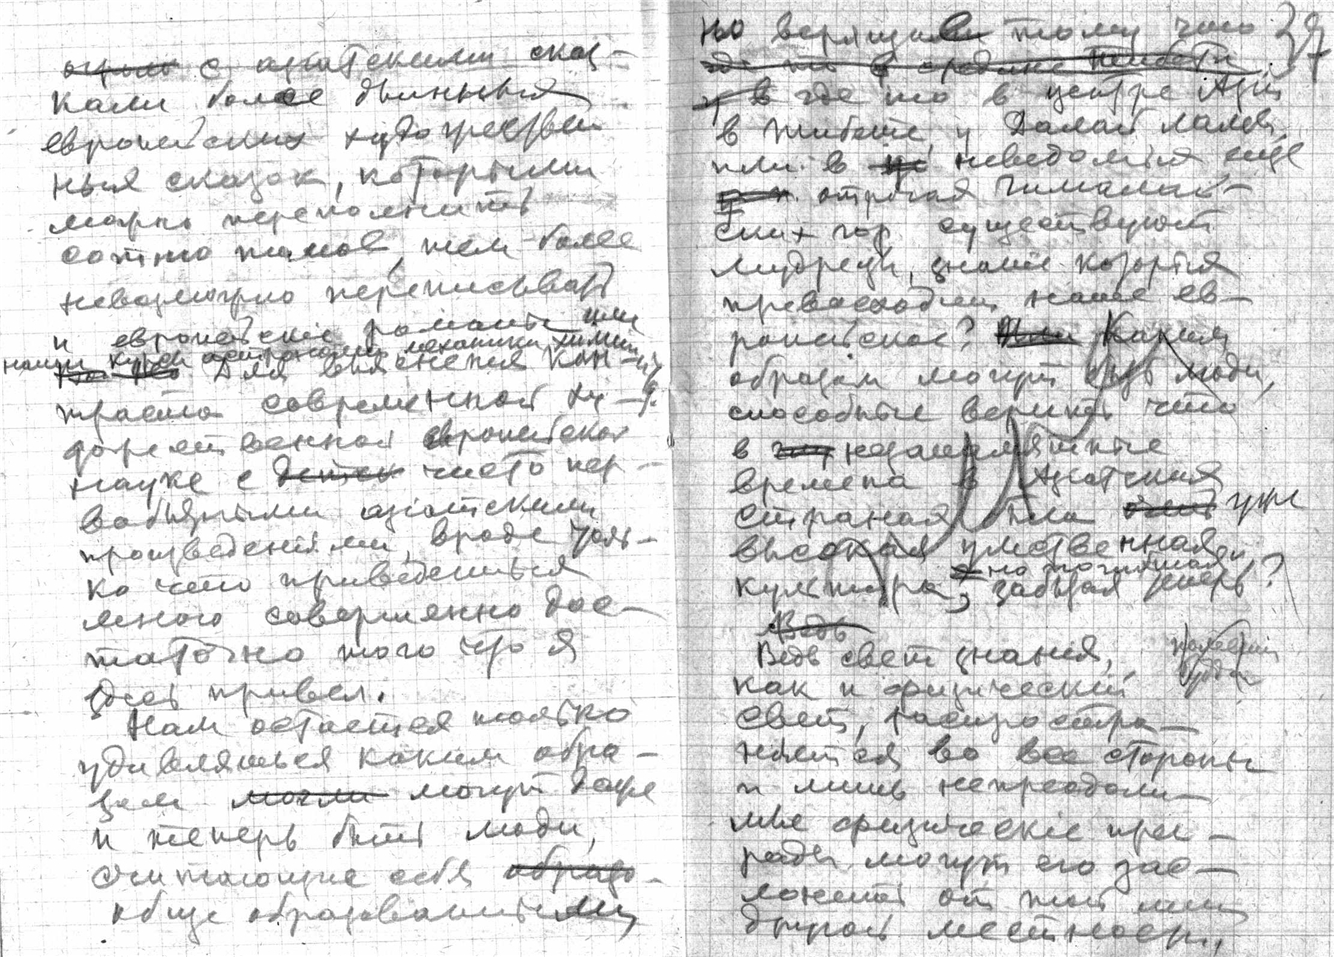 с азиатскими сказ-
ками более длинныя
европейских художествен
ныя сказок, которыми
можно переполнить
сотню томов, тем более
невозможно переписывать
и европейскіе романы или
наши курсы астрономіи механики химіи
Для выясненія кон-
траста современной ху-
дожественной европейской
науке с чисто пер-
вобытными азіатскими
произведеніями, вроде толь-
ко что приведеннаго
много совершенно дос-
таточно того что я
здесь привел.
Нам остается только
удивляться каким обра-
зом могли могут даже
и теперь быть люди,
считающие себя образо-
обще образованными
но верящие тому что 37
в средине Тибета
и в где то в центре Азіи
в Тибете, у Далай ламы,
или в неведомыя еще
отрогах Гималай-
ских гор существуют
мудрецы, знаніе которыя
превосходит наше ев-
ропейское? Каким
образом могут быть люди,
способные верить что
в незапамятные
времена в Азіатских
странах была уже
высокая умственная
но погибшая и
культура, забытая теперь?
Ведь
Ведь свет знанія,
как и физическій
свет, распростра-
няется во все стороны
и лишь непреодоли-
мые физическіе прег-
рады могут его зас-
лонить от той или
другой местности,